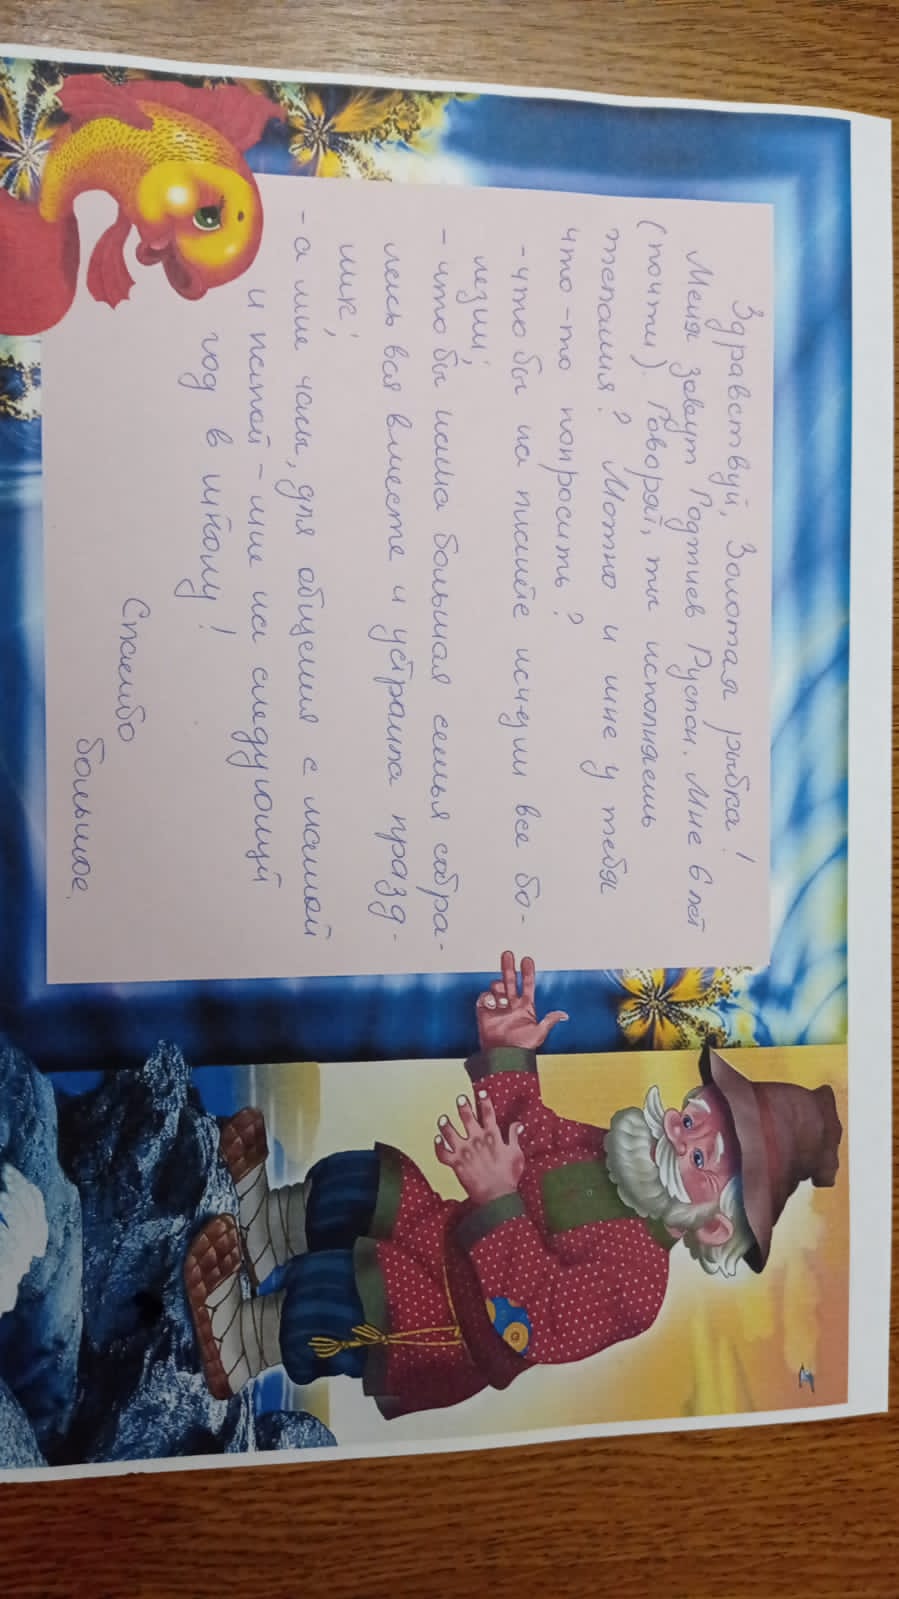 Здравствуй, Золотая рыбка!
Меня зовут Годтиев Руслан. Мне 6 лет
(почти). Говорят, ты исполняешь
желания? Можно и мне у тебя
что-то попросить?
- что бы на планете исчезли все бо-
лезни;
- что бы наша большая семья собра-
лась вся вместе и устроила празд-
ник;
- а мне часы, для общения с мамой
и папой - мне на следующий
год в школу!
Спасибо
большое.